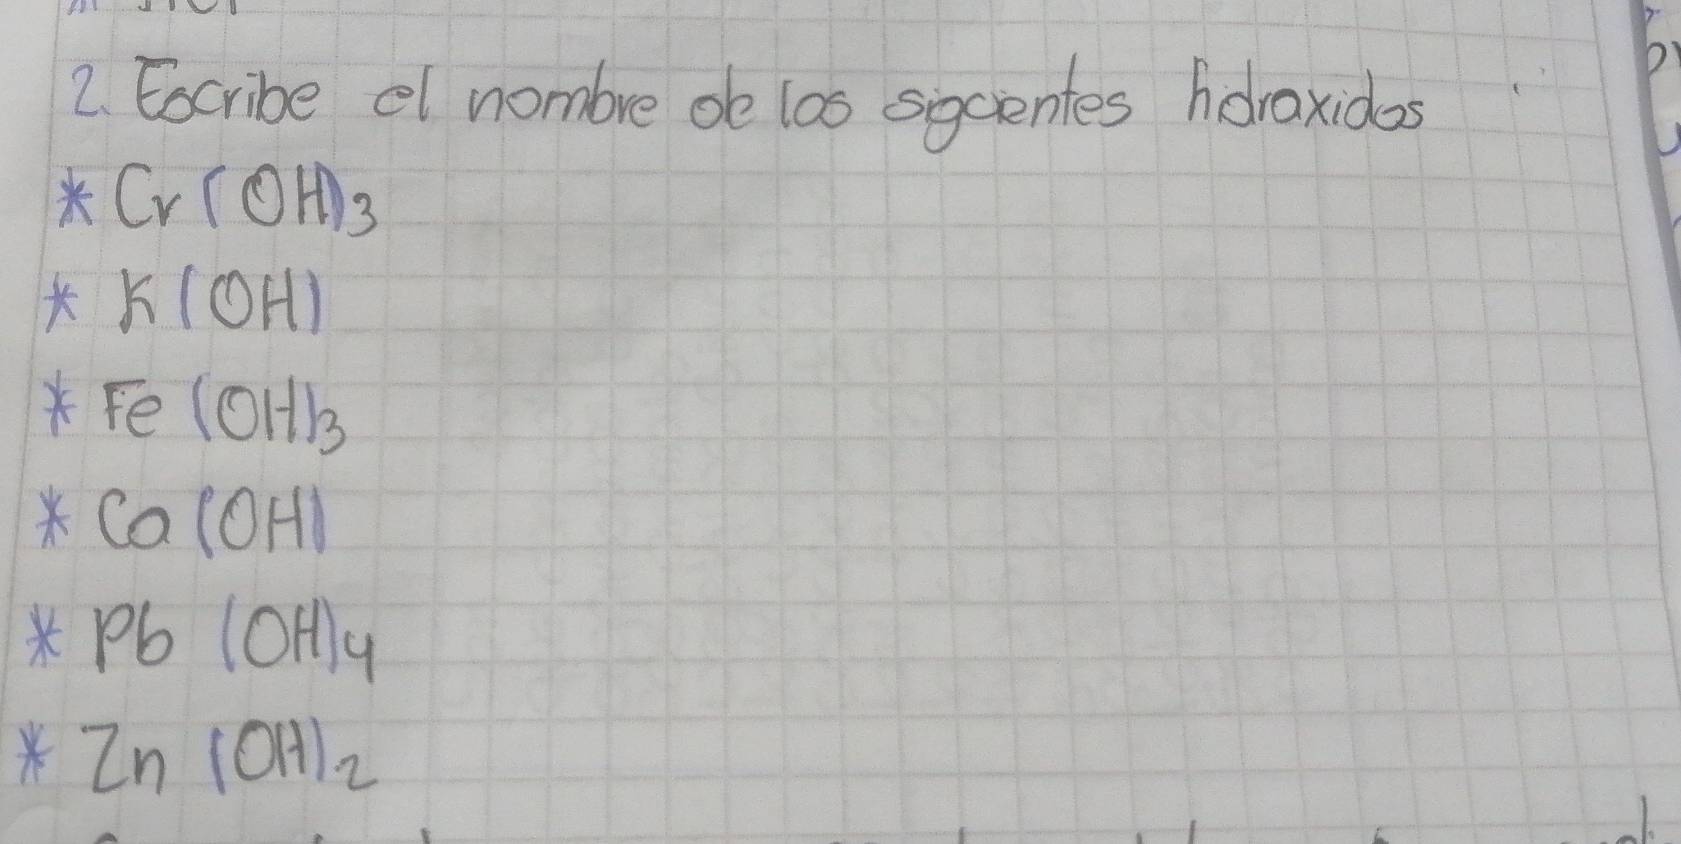 2. Escribe el nombre de los sigcientes hidroxidos
* Cr(OH)3
* K(OH)
* Fe (OH)3
* Ca(OH)
* Pb (OH)4
* Zn (OH)2